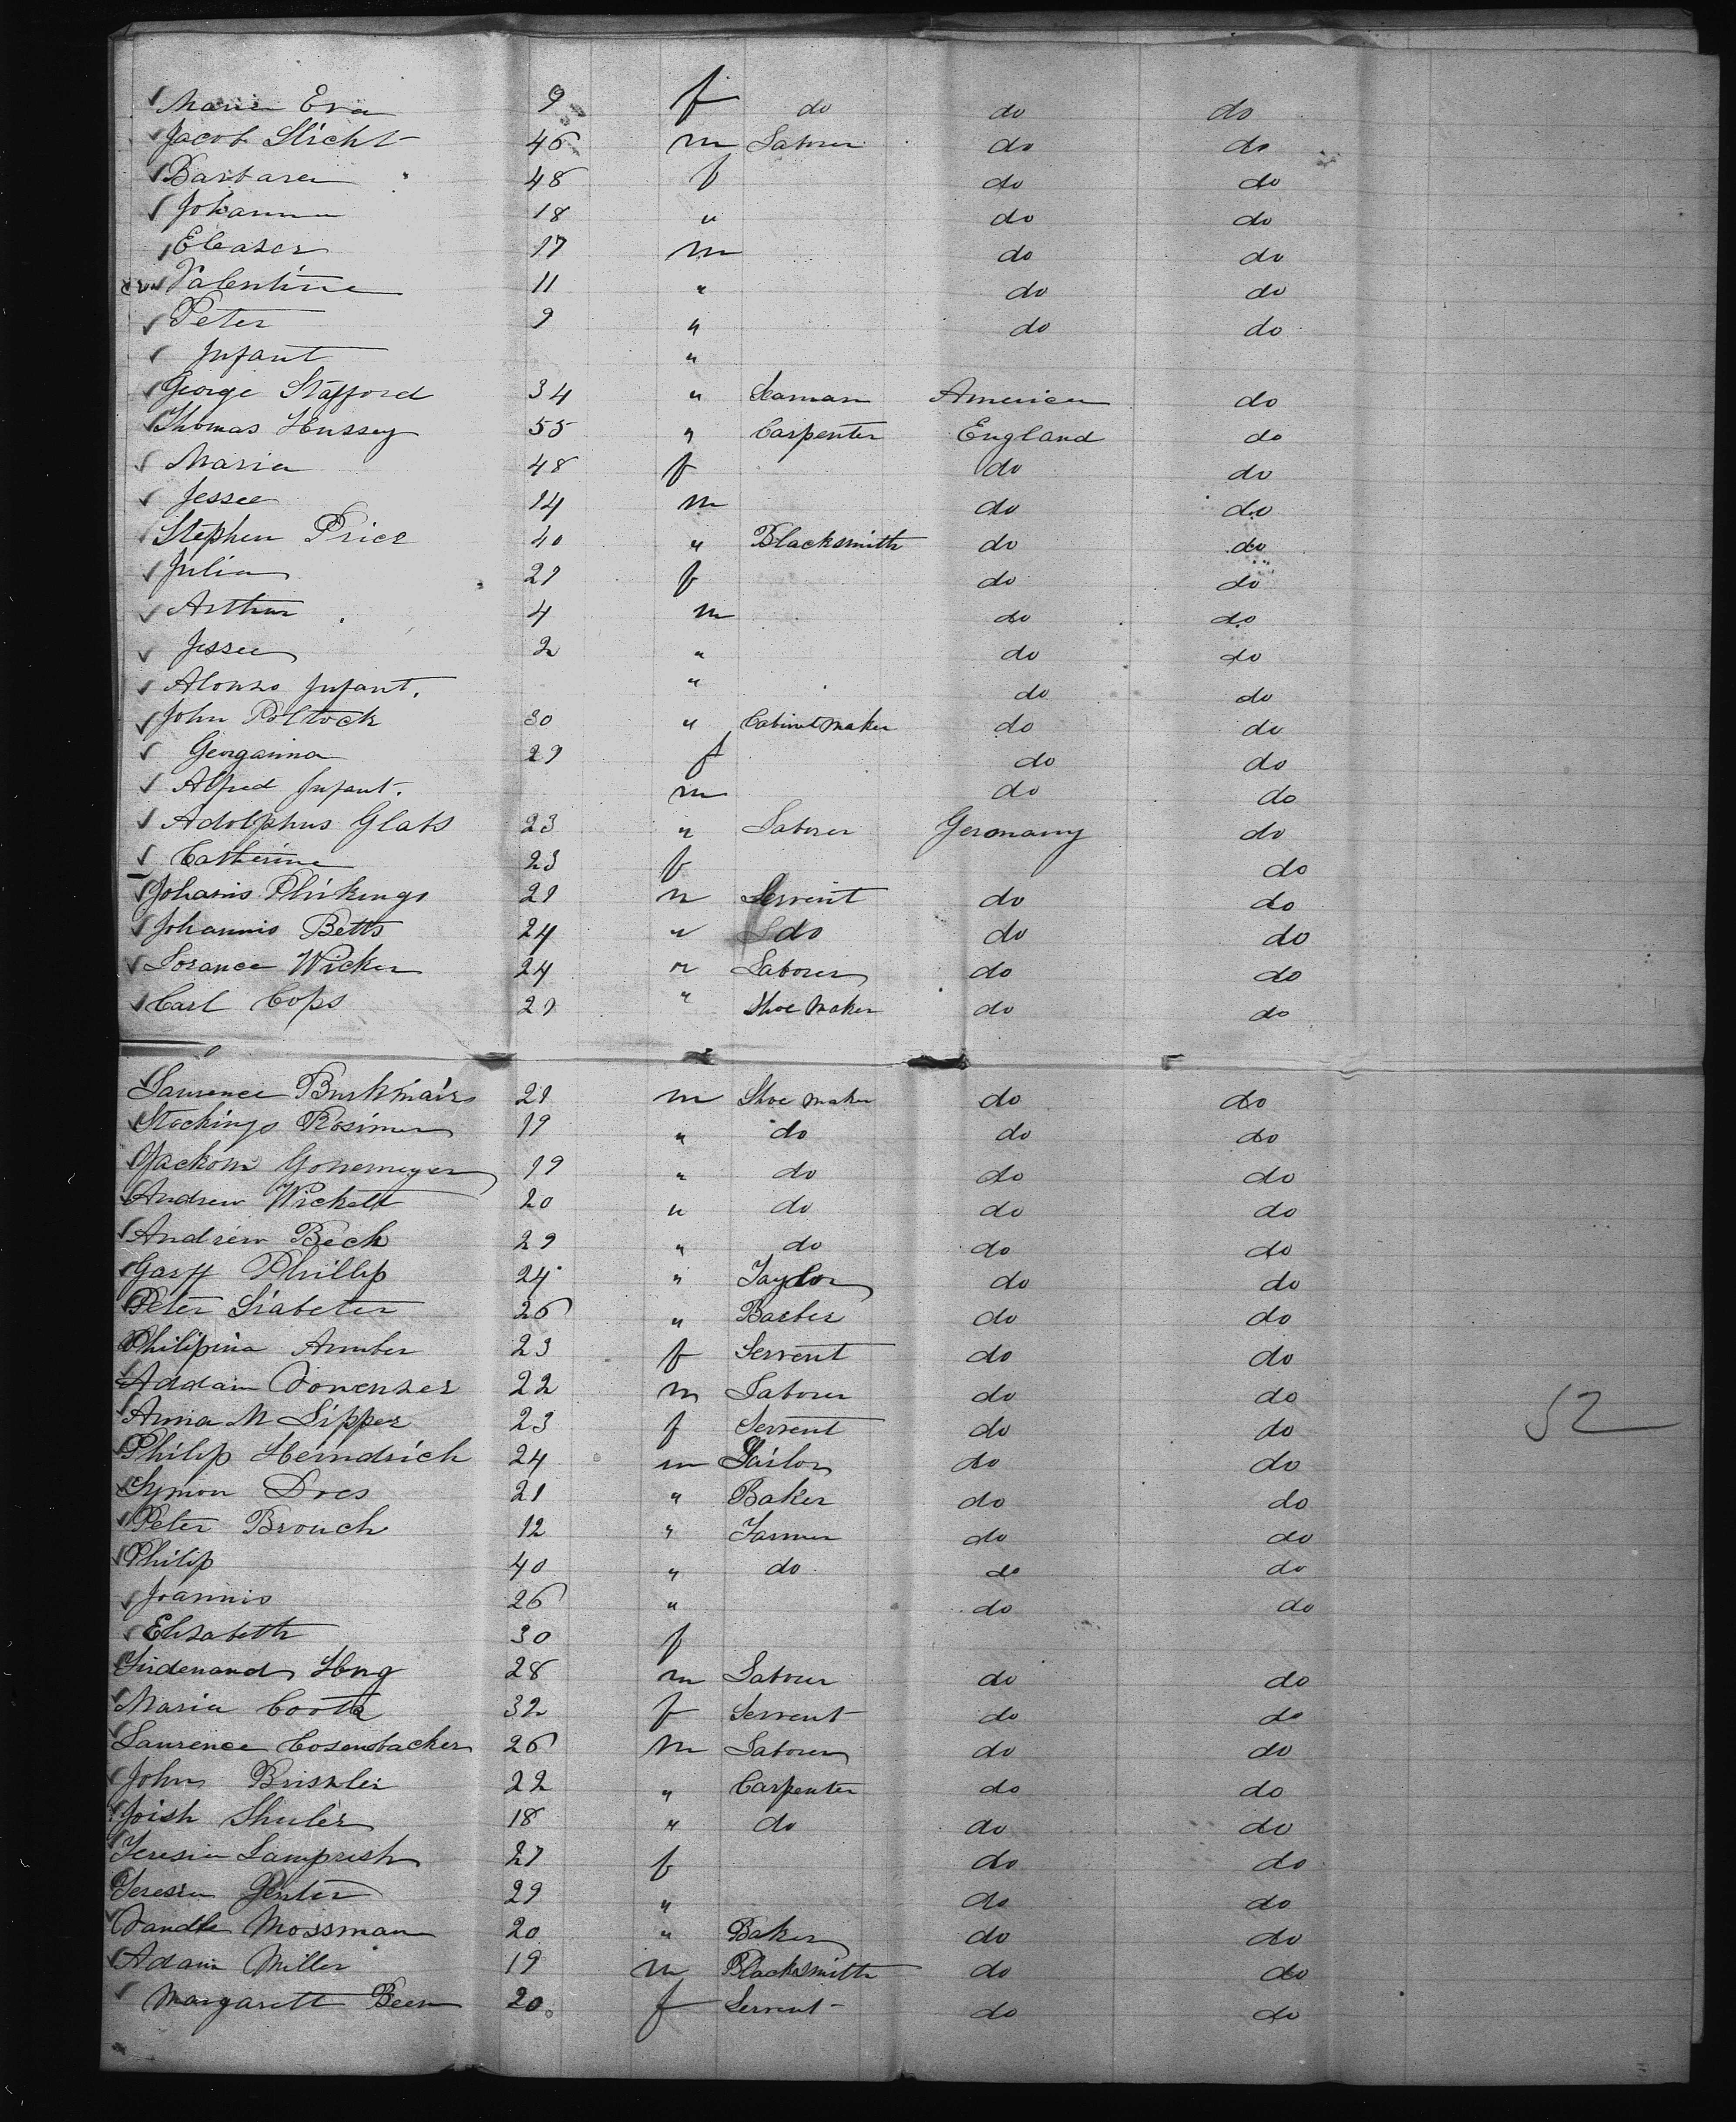 Maria Eva 9 f do do do
Jacob Slicht 46 m Laborer do do
Barbara " 48 f do do
Johanna 18 " do do
Eleaser 17 m do do
Valentine 11 " do do
Peter 9 " do do
Infant "
George Stafford 34 " Seaman America do
Thomas Hussey 55 " Carpenter England do
Maria 48 f do do
Jessee 14 m do do
Stephen Price 40 " Blacksmith do do
Julia 29 f do do
Arthur 4 m do do
Jessee 2 " do do
Alonzo Infant. " do do
John Poltock 30 " Cabinet maker do do
Georganna 29 f do do
Alfred Infant. m do do
Adolphus Glats 23 " Laborer Germany do
Catherine 23 f do
Johanis Phikings 29 m Servent do do
Johannis Betts 24 " do do do
Lorance Wicker 24 " Laborer do do
Carl Cops 29 " Shoe Maker do do
Laurence Burkmairs 29 m Shoe maker do do
Stockings Rosimer 19 " do do do
Jackom Gonemeyer 19 " do do do
Andrew Wickelt 20 " do do do
Andrew Beck 29 " do do do
Garff Phillip 24 " Taylor do do
Peter Liabeter 26 " Barber do do
Philipina Armber 23 f Servent do do
Addam Vonenser 22 m Laborer do do
Anna M Lipper 23 f Servent do do
52
Philip Herndrich 24 m Tailor do do
Symon Dres 21 " Baker do do
Peter Brouch 12 " Farmer do do
Philip 40 " do do do
Joannis 26 " do do
Elisabeth 30 f
Firdenand Hong 28 m Laborer do do
Maria Coots 32 f Servent do do
Laurence Cosenbacker 26 m Laborer do do
John Brissler 22 " Carpenter do do
Joish Shuler 18 " do do do
Teresia Lamprish 27 f do do
Teresia Genter 29 " do do
Vandle Mossman 20 " Baker do do
Adam Miller 19 m Blacksmith do do
Margarett Been 20 f Servent do do